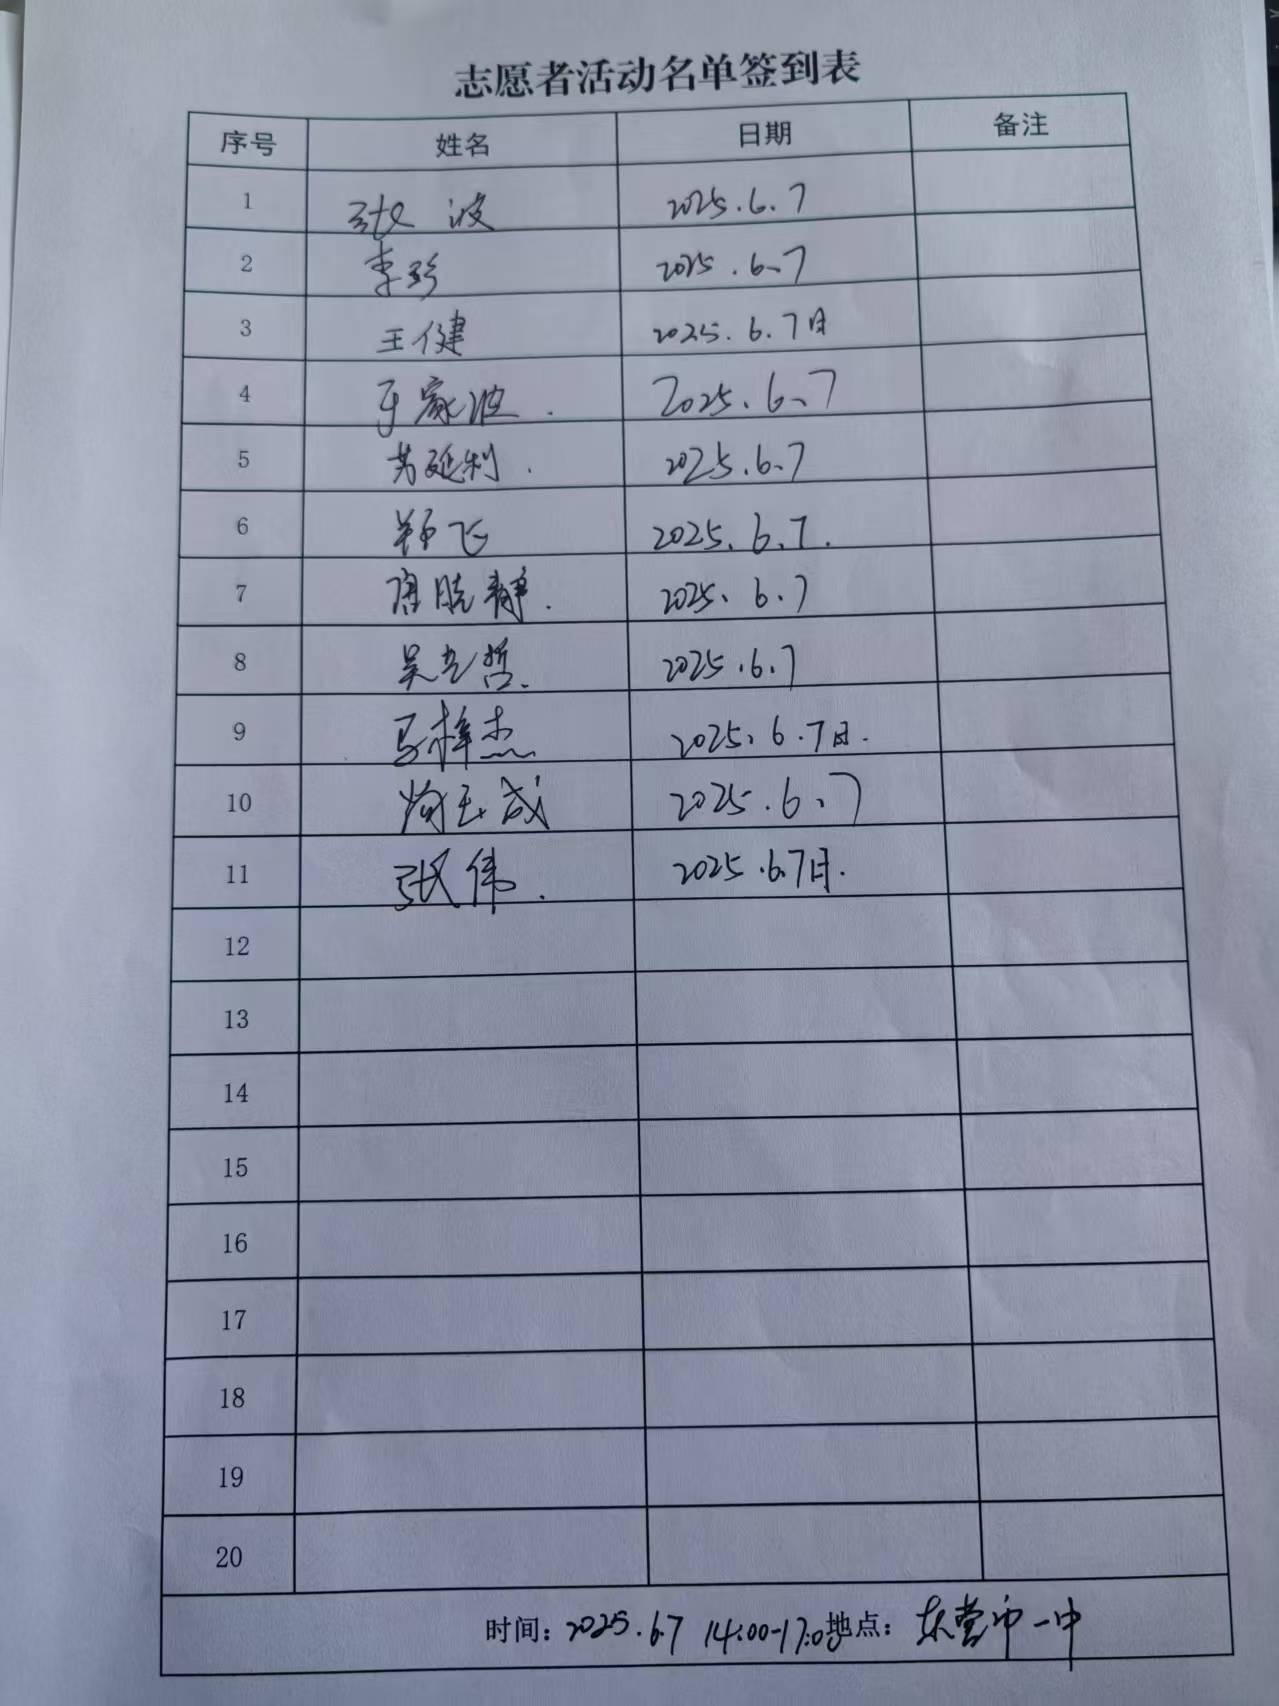 志愿者活动名单签到表
序号 姓名 日期 备注
1 张波 2025.6.7
2 李珍 2025.6.7
3 王健 2025.6.7日
4 于家波. 2025.6.7
5 苏延利. 2025.6.7
6 郑飞 2025.6.7.
7 唐晓静. 2025.6.7
8 吴哲. 2025.6.7
9 马梓杰 2025.6.7日.
10 玉成 2025.6.7
11 张伟. 2025.6.7日.
12
13
14
15
16
17
18
19
20
时间:2025.6.7 14:00-17:00地点:东营市一中